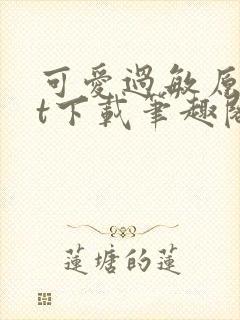 可愛過敏原
t下載筆趣閣
蓮塘的蓮